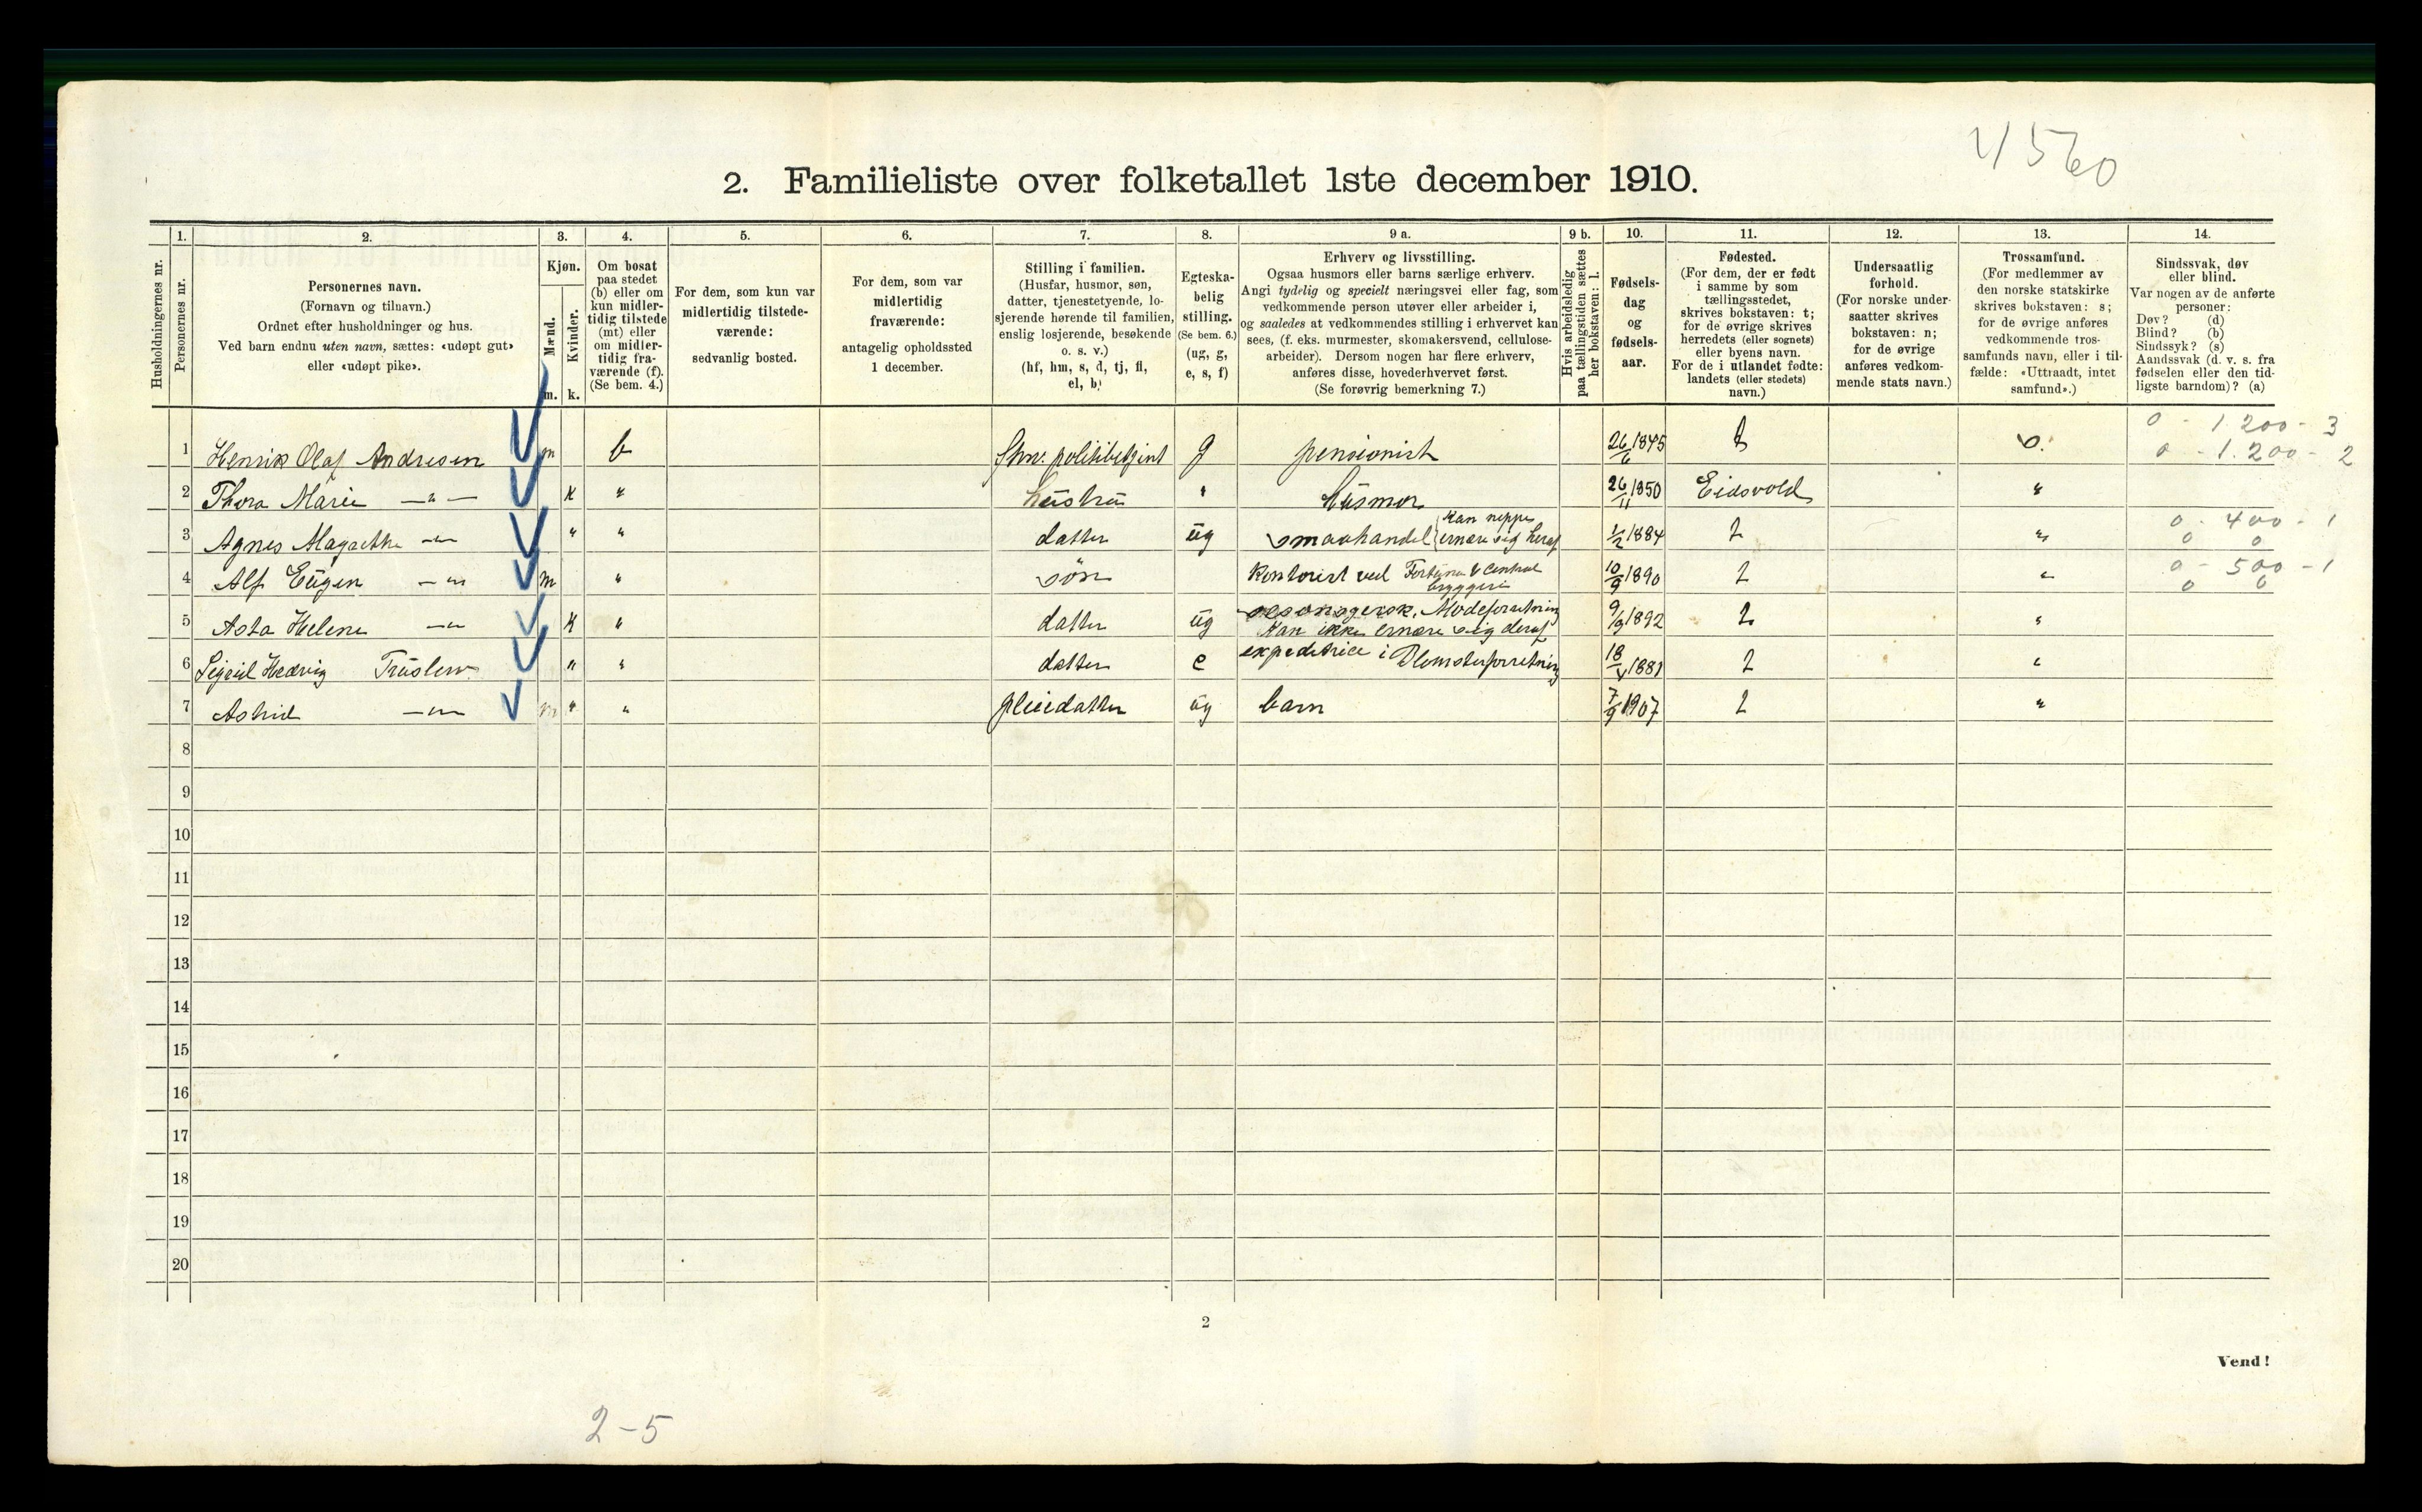 4560
2. Familieliste over folketallet 1ste december 1910.
Husholdningernes nr.
1.
Personernes nr.
2.
Personernes navn.
(Fornavn og tilnavn.)
Ordnet efter husholdninger og hus.
Ved barn endnu uten navn, sættes: «udøpt gut»
eller «udøpt pike».
3.
Kjøn.
Mænd.
Kvinder.
m. k.
4.
Om bosat
paa stedet
(b) eller om
kun midler-
tidig tilstede
(mt) eller
om midler-
tidig fra-
værende (f).
(Se bem. 4.)
5.
For dem, som kun var
midlertidig tilstede-
værende:
sedvanlig bosted.
6.
For dem, som var
midlertidig
fraværende:
antagelig opholdssted
1 december.
7.
Stilling i familien.
(Husfar, husmor, søn,
datter, tjenestetyende, lo-
sjerende hørende til familien,
enslig losjerende, besøkende
o. s. v.)
(hf, hm, s, d, tj, fl,
el, b)
8.
Egteska-
belig
stilling.
(Se bem. 6.)
(ug, g,
e, s, f)
9 a.
Erhverv og livsstilling.
Ogsaa husmors eller barns særlige erhverv.
Angi tydelig og specielt næringsvei eller fag, som
vedkommende person utøver eller arbeider i,
og saaledes at vedkommendes stilling i erhvervet kan
sees, (f. eks. murmester, skomakersvend, cellulose-
arbeider). Dersom nogen har flere erhverv,
anføres disse, hovederhvervet først.
(Se forøvrig bemerkning 7.)
9 b.
Hvis arbeidsledig
paa tællingstiden sættes
her bokstaven: l.
10.
Fødsels-
dag
og
fødsels-
aar.
11.
Fødested.
(For dem, der er født
i samme by som
tællingsstedet,
skrives bokstaven: t;
for de øvrige skrives
herredets (eller sognets)
eller byens navn.
For de i utlandet fødte:
landets (eller stedets)
navn.)
12.
Undersaatlig
forhold.
(For norske under-
saatter skrives
bokstaven: n;
for de øvrige
anføres vedkom-
mende stats navn.)
13.
Trossamfund.
(For medlemmer av
den norske statskirke
skrives bokstaven: s;
for de øvrige anføres
vedkommende tros-
samfunds navn, eller i til-
fælde: «Uttraadt, intet
samfund».)
14.
Sindssvak, døv
eller blind.
Var nogen av de anførte
personer:
Døv? (d)
Blind? (b)
Sindssyk? (s)
Aandssvak (d. v. s. fra
fødselen eller den tid-
ligste barndom)? (a)
0 - 1.200 - 3
1 Henrik Olaf Andresen m b politibetjent g pensionist 26/6 1845 t s. 0 - 1.200 - 2
2 Thora Marie —"— k " hustru " husmor 26/11 1850 Eidsvold "
3 Agnes Magarethe —"— " " datter ug smaahandel {kan neppe ernære sig heraf 1/2 1884 t " 0 - 400 - 1
0 0
4 Alf Eugen —"— m " søn Kontorist ved Fortuna & Central bryggeri 10/9 1890 t " 0 - 500 - 1
0 0
5 Asta Helene —"— k " datter ug Modeforretning Kan ikke ernære sig deraf 9/9 1892 t "
6 Hedvig " " datter e expeditrice i Blomsterforretning 1881 t "
7 Astrid —"— m " " pleiedatter ug barn 7/9 1907 t "
8
9
10
11
12
13
14
15
16
17
18
19
20
2
Vend!
2-5